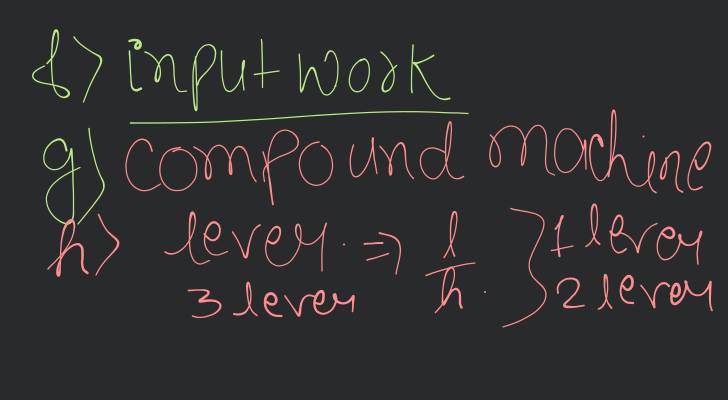 f) input work
g) compound machine
h) lever. => l/h. } 1 lever
3 lever 2 lever